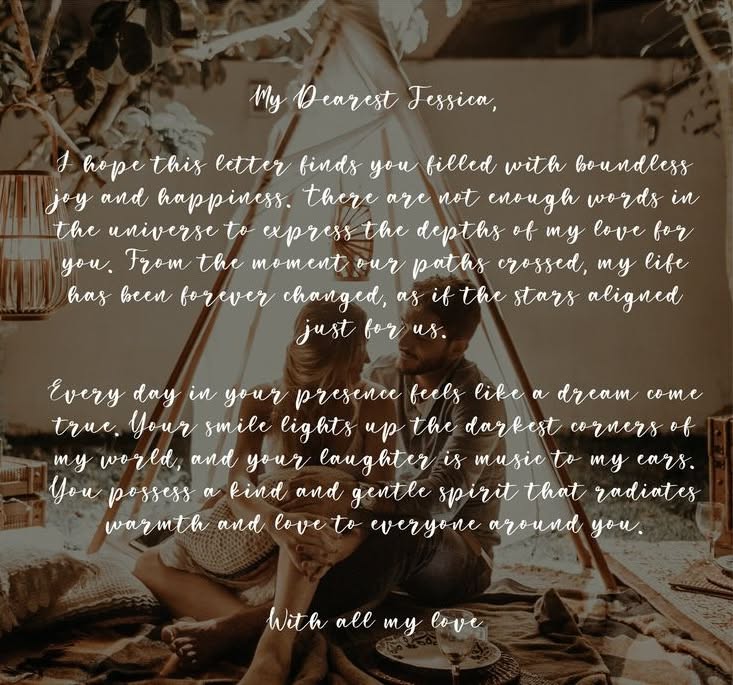 My Dearest Jessica,
I hope this letter finds you filled with boundless
joy and happiness. There are not enough words in
the universe to express the depths of my love for
you. From the moment our paths crossed, my life
has been forever changed, as if the stars aligned
just for us.
Every day in your presence feels like a dream come
true. Your smile lights up the darkest corners of
my world, and your laughter is music to my ears.
You possess a kind and gentle spirit that radiates
warmth and love to everyone around you.
With all my love